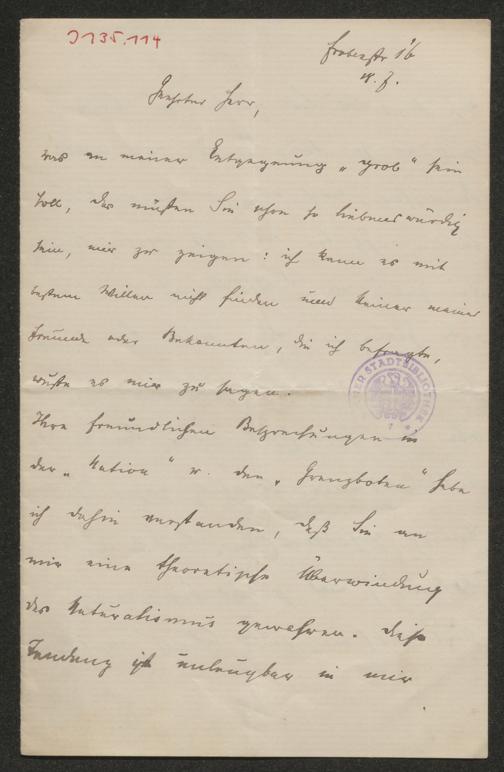 J 135.114
Frobenstr 16
Geehrter Herr,
was an meiner Entgegnung „grob“ sein
soll, das müssen Sie schon so liebenswürdig
sein, mir zu zeigen: ich kann es mit
bestem Willen nicht finden und keiner meiner
Freunde oder Bekannten, die ich befragte,
wußte es mir zu sagen.
Ihre freundlichen Besprechungen in
der „Nation“ u. den „Grenzboten“ habe
ich dahin verstanden, daß Sie an
mir eine theoretische Überwindung
des Naturalismus gewahren. Diese
Tendenz ist unleugbar in mir
STADTBIBLIOTHEK